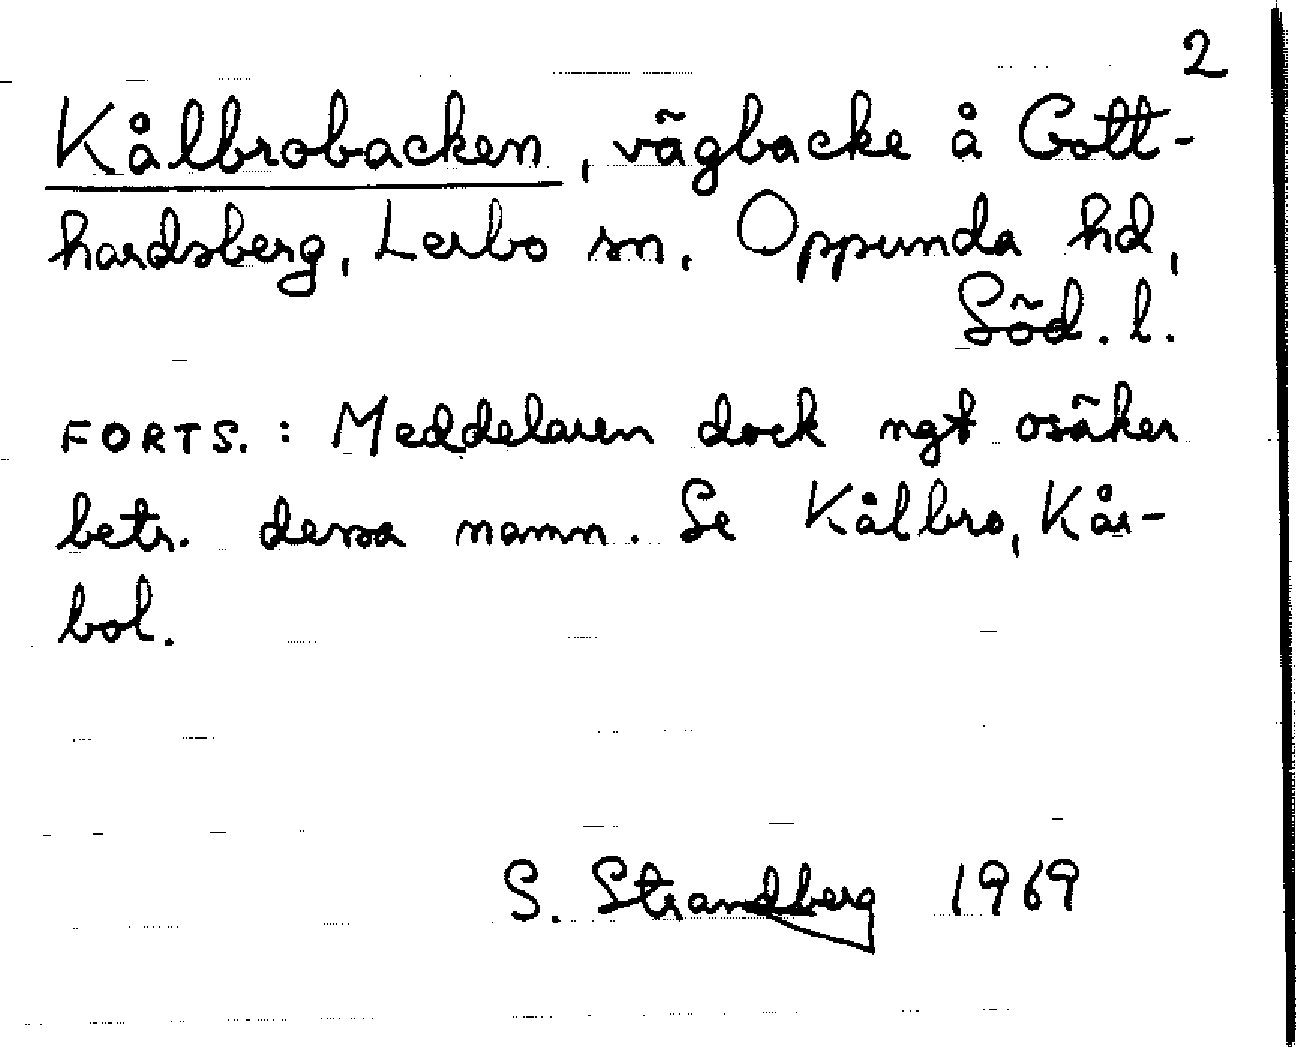 2
Kålbrobacken, vägbacke å Gott-
hardsberg, Lerbo sn, Oppunda hd,
Söd. l.
FORTS. : Meddelaren dock ngt osäker
betr. dessa namn. Se Kålbro, Kår-
bol.
S. Strandberg 1969